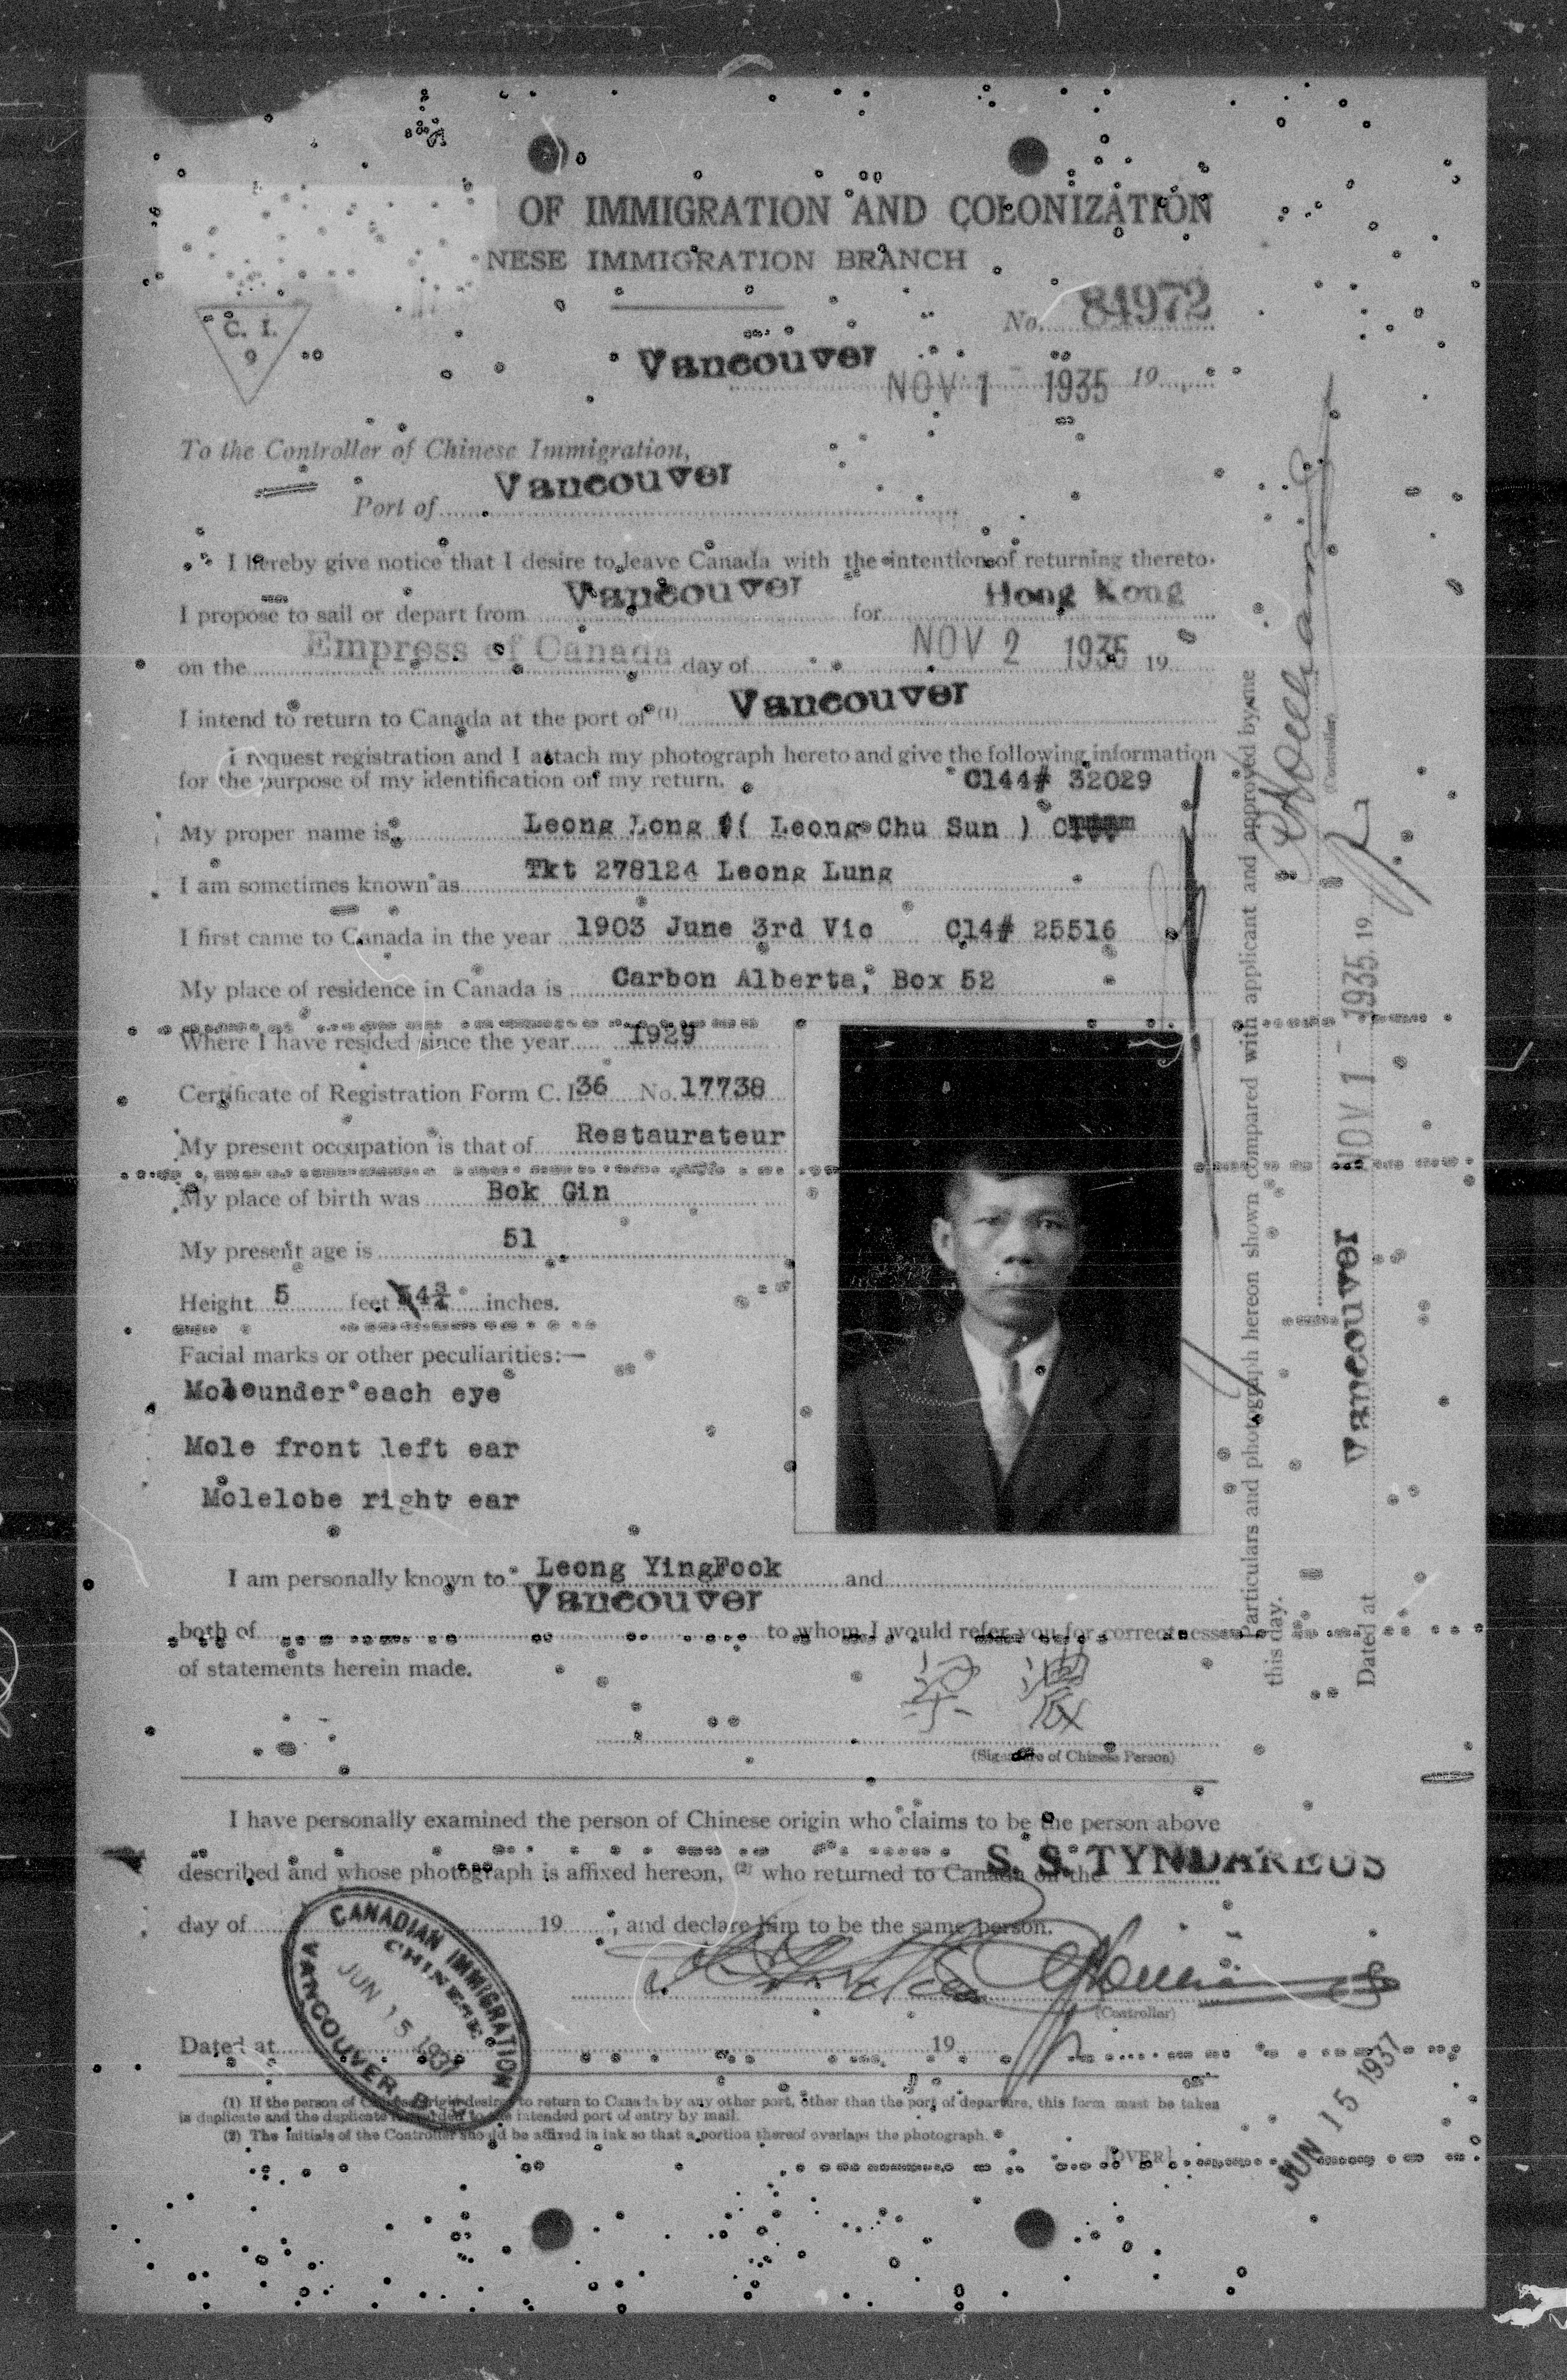 OF IMMIGRATION AND COLONIZATION
NESE IMMIGRATION BRANCH
C. I.
9
No. 84972
Vancouver
NOV 1 1935 19
To the Controller of Chinese Immigration,
Port of Vancouver
I hereby give notice that I desire to leave Canada with the intention of returning thereto.
I propose to sail or depart from Vancouver for Hong Kong
on the Empress of Canada day of NOV 2 1935 19
I intend to return to Canada at the port of (1) Vancouver
I request registration and I attach my photograph hereto and give the following information
for the purpose of my identification on my return. C144# 32029
My proper name is Leong Long ( Leong Chu Sun )
I am sometimes known as Tkt 278124 Leong Lung
I first came to Canada in the year 1903 June 3rd Vic C14# 25516
My place of residence in Canada is Carbon Alberta, Box 52
Where I have resided since the year 1929
Certificate of Registration Form C. I. 36 No. 17738
My present occupation is that of Restaurateur
My place of birth was Bok Gin
My present age is 51
Height 5 feet 4¾ inches.
Facial marks or other peculiarities:—
Mole under each eye
Mole front left ear
Molelobe right ear
I am personally known to Leong YingFook and
both of Vancouver to whom I would refer you for correctness
of statements herein made.
梁 濃
(Signature of Chinese Person)
I have personally examined the person of Chinese origin who claims to be the person above
described and whose photograph is affixed hereon, (2) who returned to Canada on the S. S. TYNDAREUS
day of 19 , and declare him to be the same person.
(Controller)
Dated at 19
CANADIAN IMMIGRATION
CHINESE
JUN 15 1937
VANCOUVER, B.
(1) If the person of Chinese origin desires to return to Canada by any other port, other than the port of departure, this form must be taken
in duplicate and the duplicate forwarded to the intended port of entry by mail.
(2) The initials of the Controller should be affixed in ink so that a portion thereof overlaps the photograph.
[OVER]
JUN 15 1937
Particulars and photograph hereon shown compared with applicant and approved by me
this day.
(Controller)
Dated at Vancouver NOV 1 - 1935 19